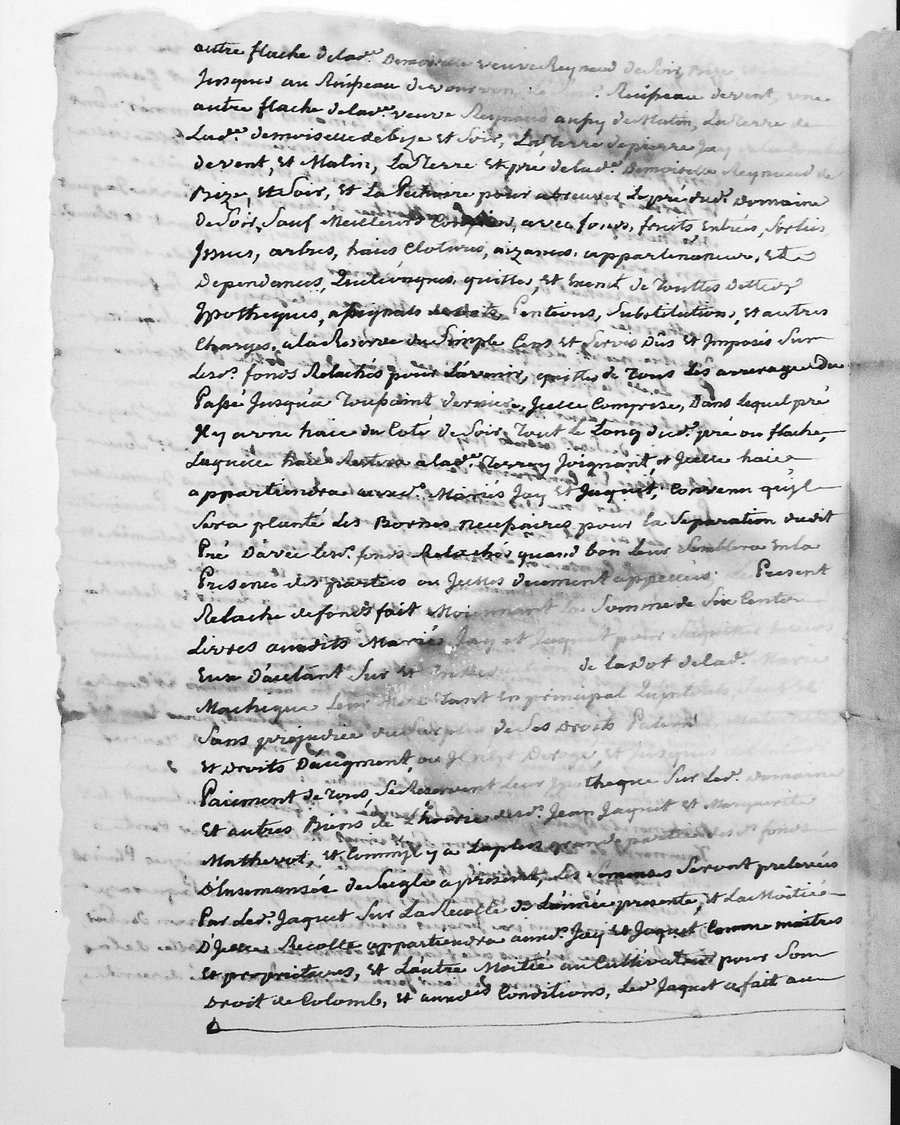 autre flache delad.e Demoiselle veuve Reynaud de Soir, Bize, et
Jusques au Ruisseau de vent, une
autre flache delad.e veuve Reynaud aussy de Matin, La Terre de
Lad.e demoiselle de bize et Soir, La Terre de pierre Jay
de vent, Et Matin, La Terre Et pré de lad.e Demoiselle Reynaud de
Bize, et Soir, Et La pour abreuver Le pré dud.t Domaine
De Soir, Sauf Meilleurs Confins, avec fonds, fruits Entrées, Sorties
Issues, arbres, haies Clotures, aizances, appartenances, Et
Dependances, Quelconques, quittes, et Exempt de Touttes Dettes
Ypotheques, assignats Pentions, Substitutions, et autres
Charges, a la Reserve du Simple Cens Et Servis Dus Et Imposés Sur
Lesd.s fonds Relachés pour L'avenir, quittes de Tous Les arrerages Du
Passé Jusqu'a Toussaint derniere, Icelle Comprise, Dans Lequel pré
Il y a une haie du Coté de Soir, Tout Le Long dud.t pré ou flache,
Laquelle haie Restera a lad.e Terray Joignant, et Icelle haie
appartiendra auxd.s Mariés Jay Et Jaquet, Convenu qu'jl
Sera planté des Bornes necessaires pour la Separation dudit
Pré D'avec Lesd.s fonds Relachés, quand bon Leur Semblera En la
Presence des parties ou Jcelles duement appellées. Le Present
Relache de fonds fait Moiennant la Somme de Six Cents
Livres auxdits Mariés Jay et Jaquet pour
Eux D'autant Sur Et de la dot de lad.e Marie
Mathique Leur Mere Tant En principal
Sans prejudice du Surplus de Ses Droits
Et Droits D'augment, ou et Jusques
Paiement de Tous, Se Reservant Leur Ypotheque Sur Led.t Domaine
Et autres Biens de L'hoirie desd.s Jean Jaquet Et Marguerite
Mathevot, et Comme Jl y a La plus grande partie des d.s fonds
D'Ensemansés de Seigle a present, Les Semences Seront prelevées
Par Led.t Jaquet Sur La Recolte de L'année presente, et La Moitié
D'Jcelle Recolte appartiendra auxd.s Jay Et Jaquet Comme maitres
Et propriétaires, Et L'autre Moitié au Cultivateur pour Son
Droit de Colomb, Et auxd.es Conditions, Led.t Jaquet a fait au